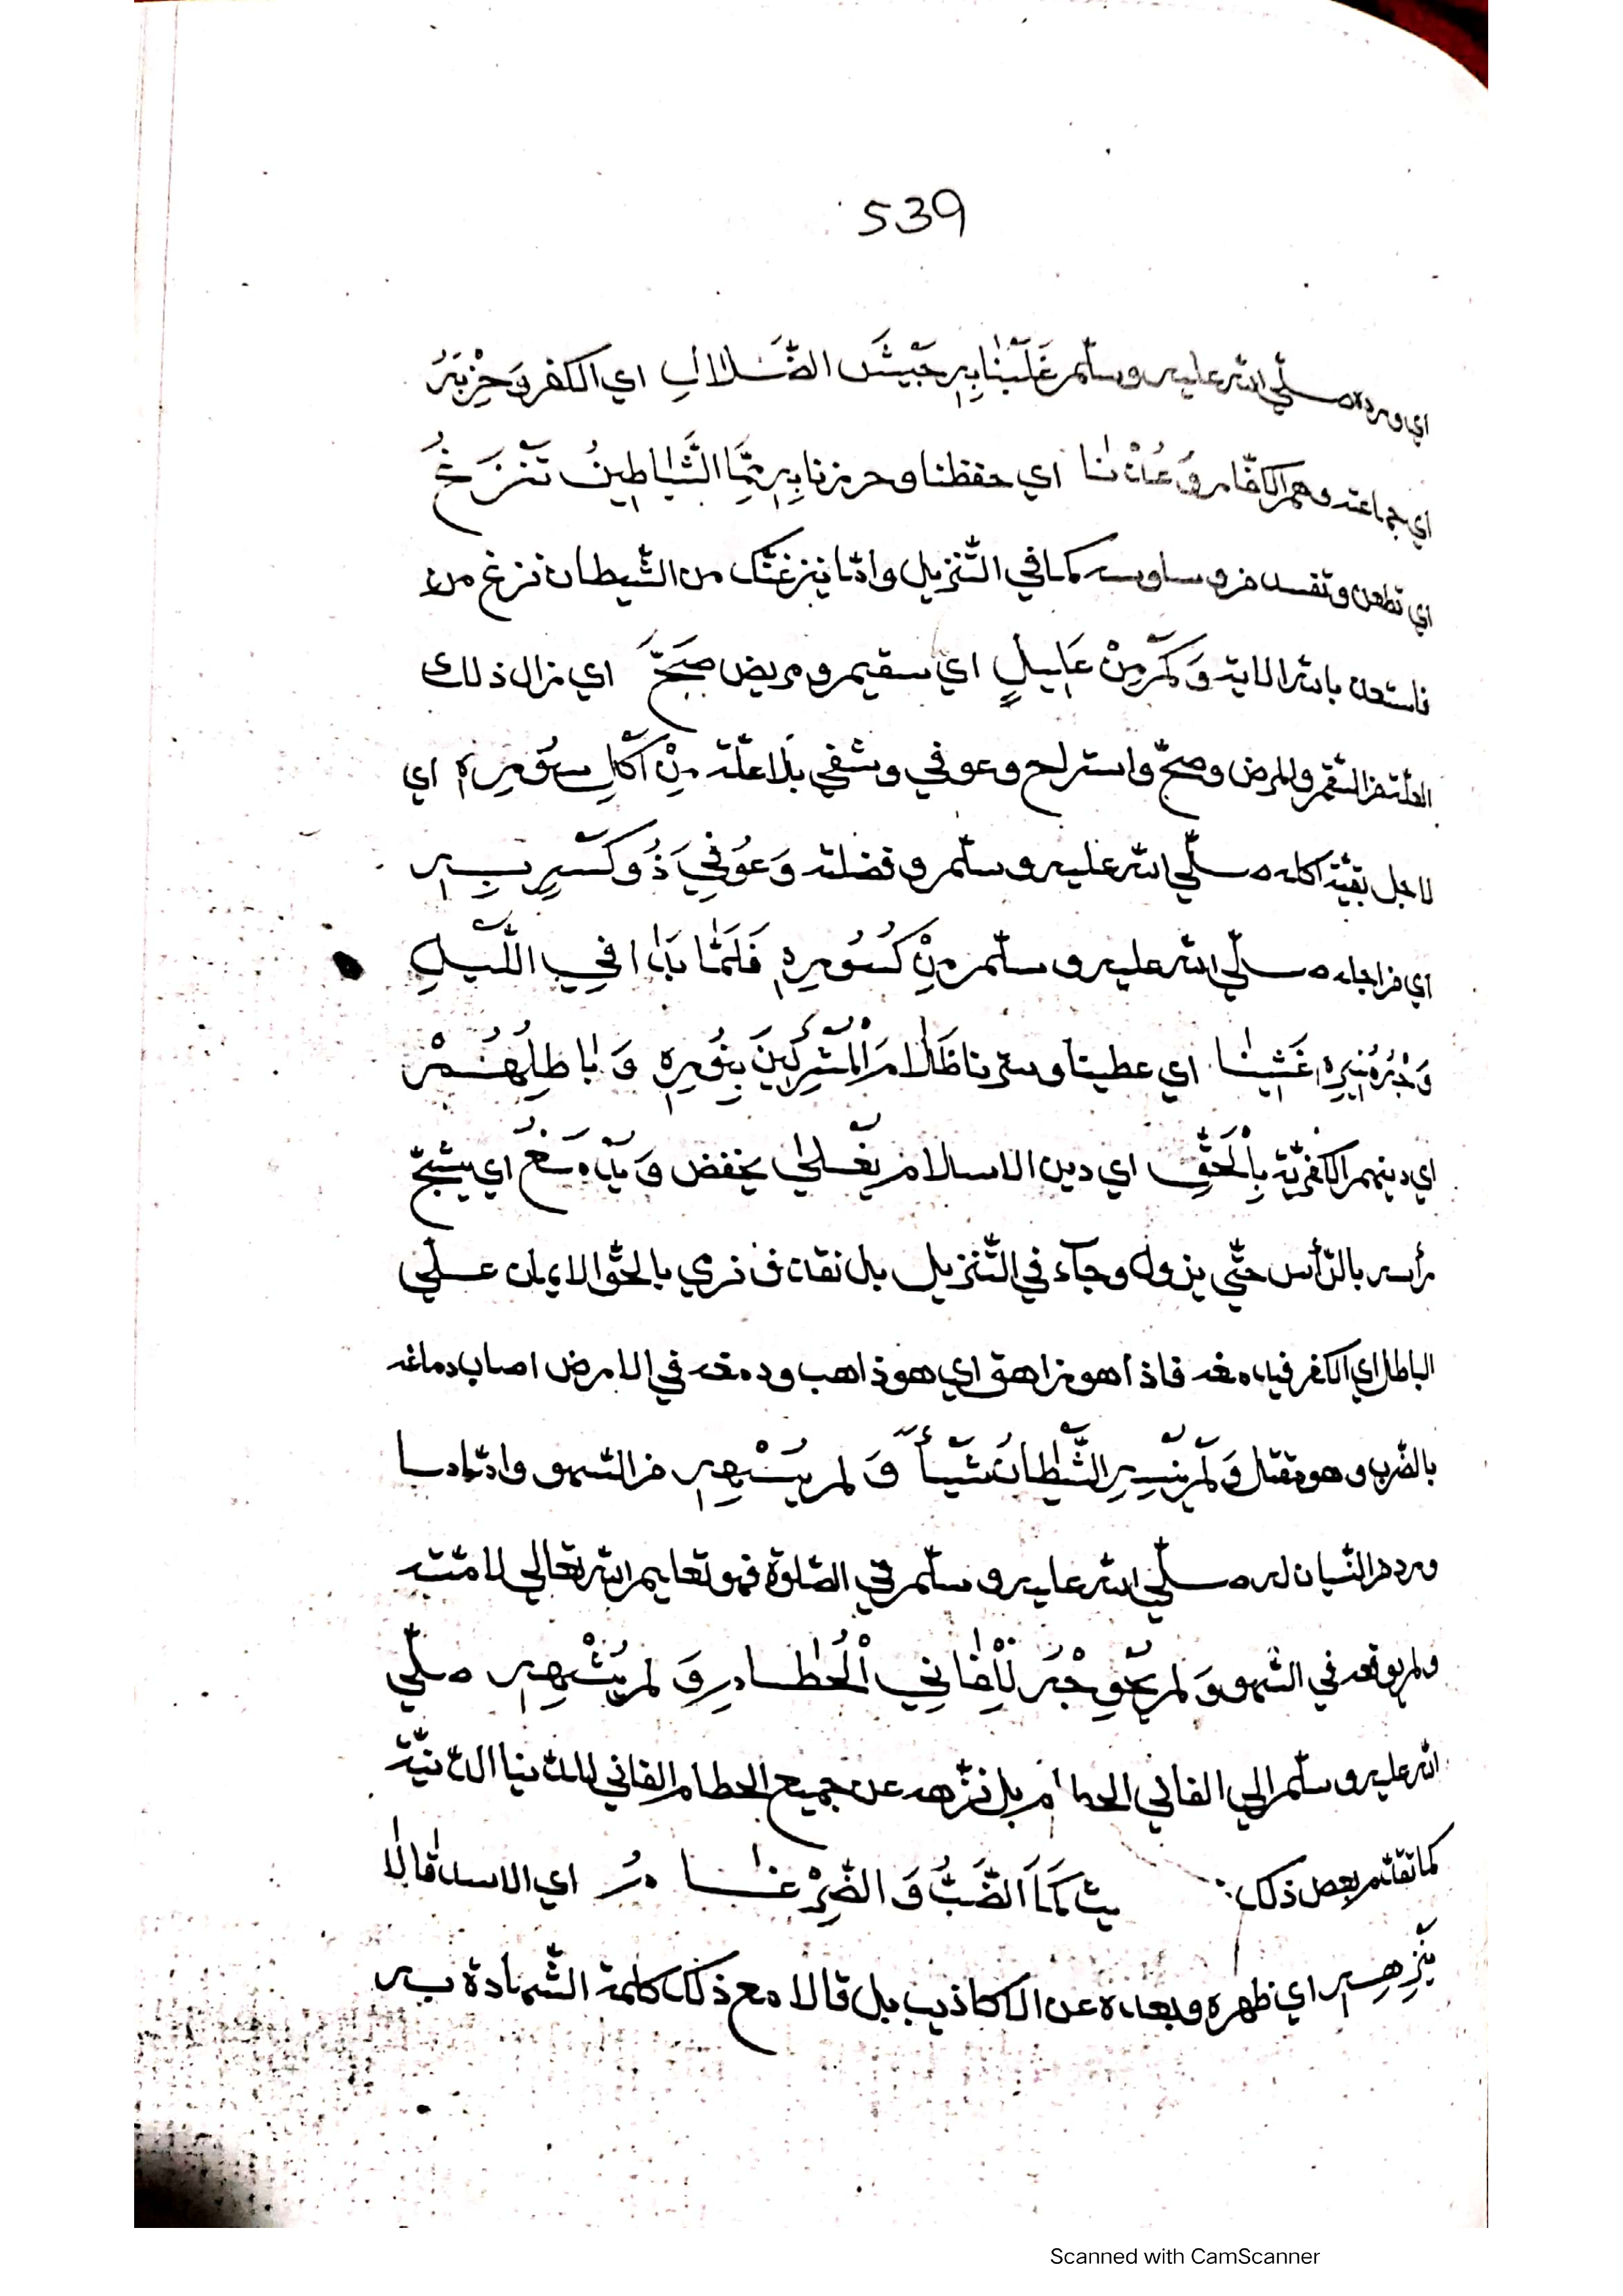 539
اي ورده صلّي الله عليه وسلّم غَلَبْنَا بِهِ جَيْشَ الضَّلَالِ اي الكفر وَحِزْبَهُ
اي جماعته وهم الكفّار وَعُذْنَا اي حفظنا وحرزنا بِهِ مِمَّا الشَّيَاطِينُ تَنْزَغُ
اي تطعن وتفسد من وساوسه كما في التّنزيل وامّا ينزغنّك من الشّيطان نزغ
فاستعذ بالله الاية وَكَمْ مِنْ عَلِيلٍ اي سقيم ومريض صَحَّ اي زال ذلك
السّقم والمرض وصحّ واستراح وعوفي وشفي بلا علّة مِنْ اَكْلِ سُؤْرِهِ اي
لاجل بقيّة اكله صلّي الله عليه وسلّم وفضلته وَعُوفِيَ ذُو كَسْرٍ بِهِ
اي من اجله صلّي الله عليه وسلّم مِنْ كُسُورِهِ فَلَمَّا بَدَا فِي اللَّيْلِ
غَشِينَا اي عطينا وسترنا ظَلَامَ الْمُشْرِكِينَ بِنُورِهِ وَبَاطِلُهُمْ
اي دينهم الكفريّة بِالْحَقِّ اي دين الاسلام يَعْلَى يخفض وَيُدْمَغُ اي يشجّ
رأسه بالرّأس حتّي يزول وجآء في التّنزيل بل نقذف نرمي بالحقّ الايمان علي
الباطل اي الكفر فيدمغه فاذا هو زاهق اي هو ذاهب ودمغه في الارض اصاب دماغه
بالضّرب وهو مقتل وَلَمْ يُنْسِهِ الشَّيْطَانُ شَيْأً وَلَمْ يُسْهِهِ من السّهو وامّا ما
ورد من النّسيان له صلّي الله عليه وسلّم في الصّلوة فهو تعليم الله تعالي لامّته
ولم يوقعه في السّهو وَلَمْ لِلْفَانِي الْحُطَامِ وَلَمْ يُشْهِهِ صلّي
الله عليه وسلّم الي الفاني الحطام بل نزّهه عن جميع الحطام الفاني للدّنيا الدّنيّة
كما تقدّم بعض ذلك: كَمَا الضَّبُّ وَالضِّرْغَامُ اي الاسد قَالَا
اي ظهره وبعده عن الاكاذيب بل قالا مع ذلك كلمة الشّهادة به
Scanned with CamScanner